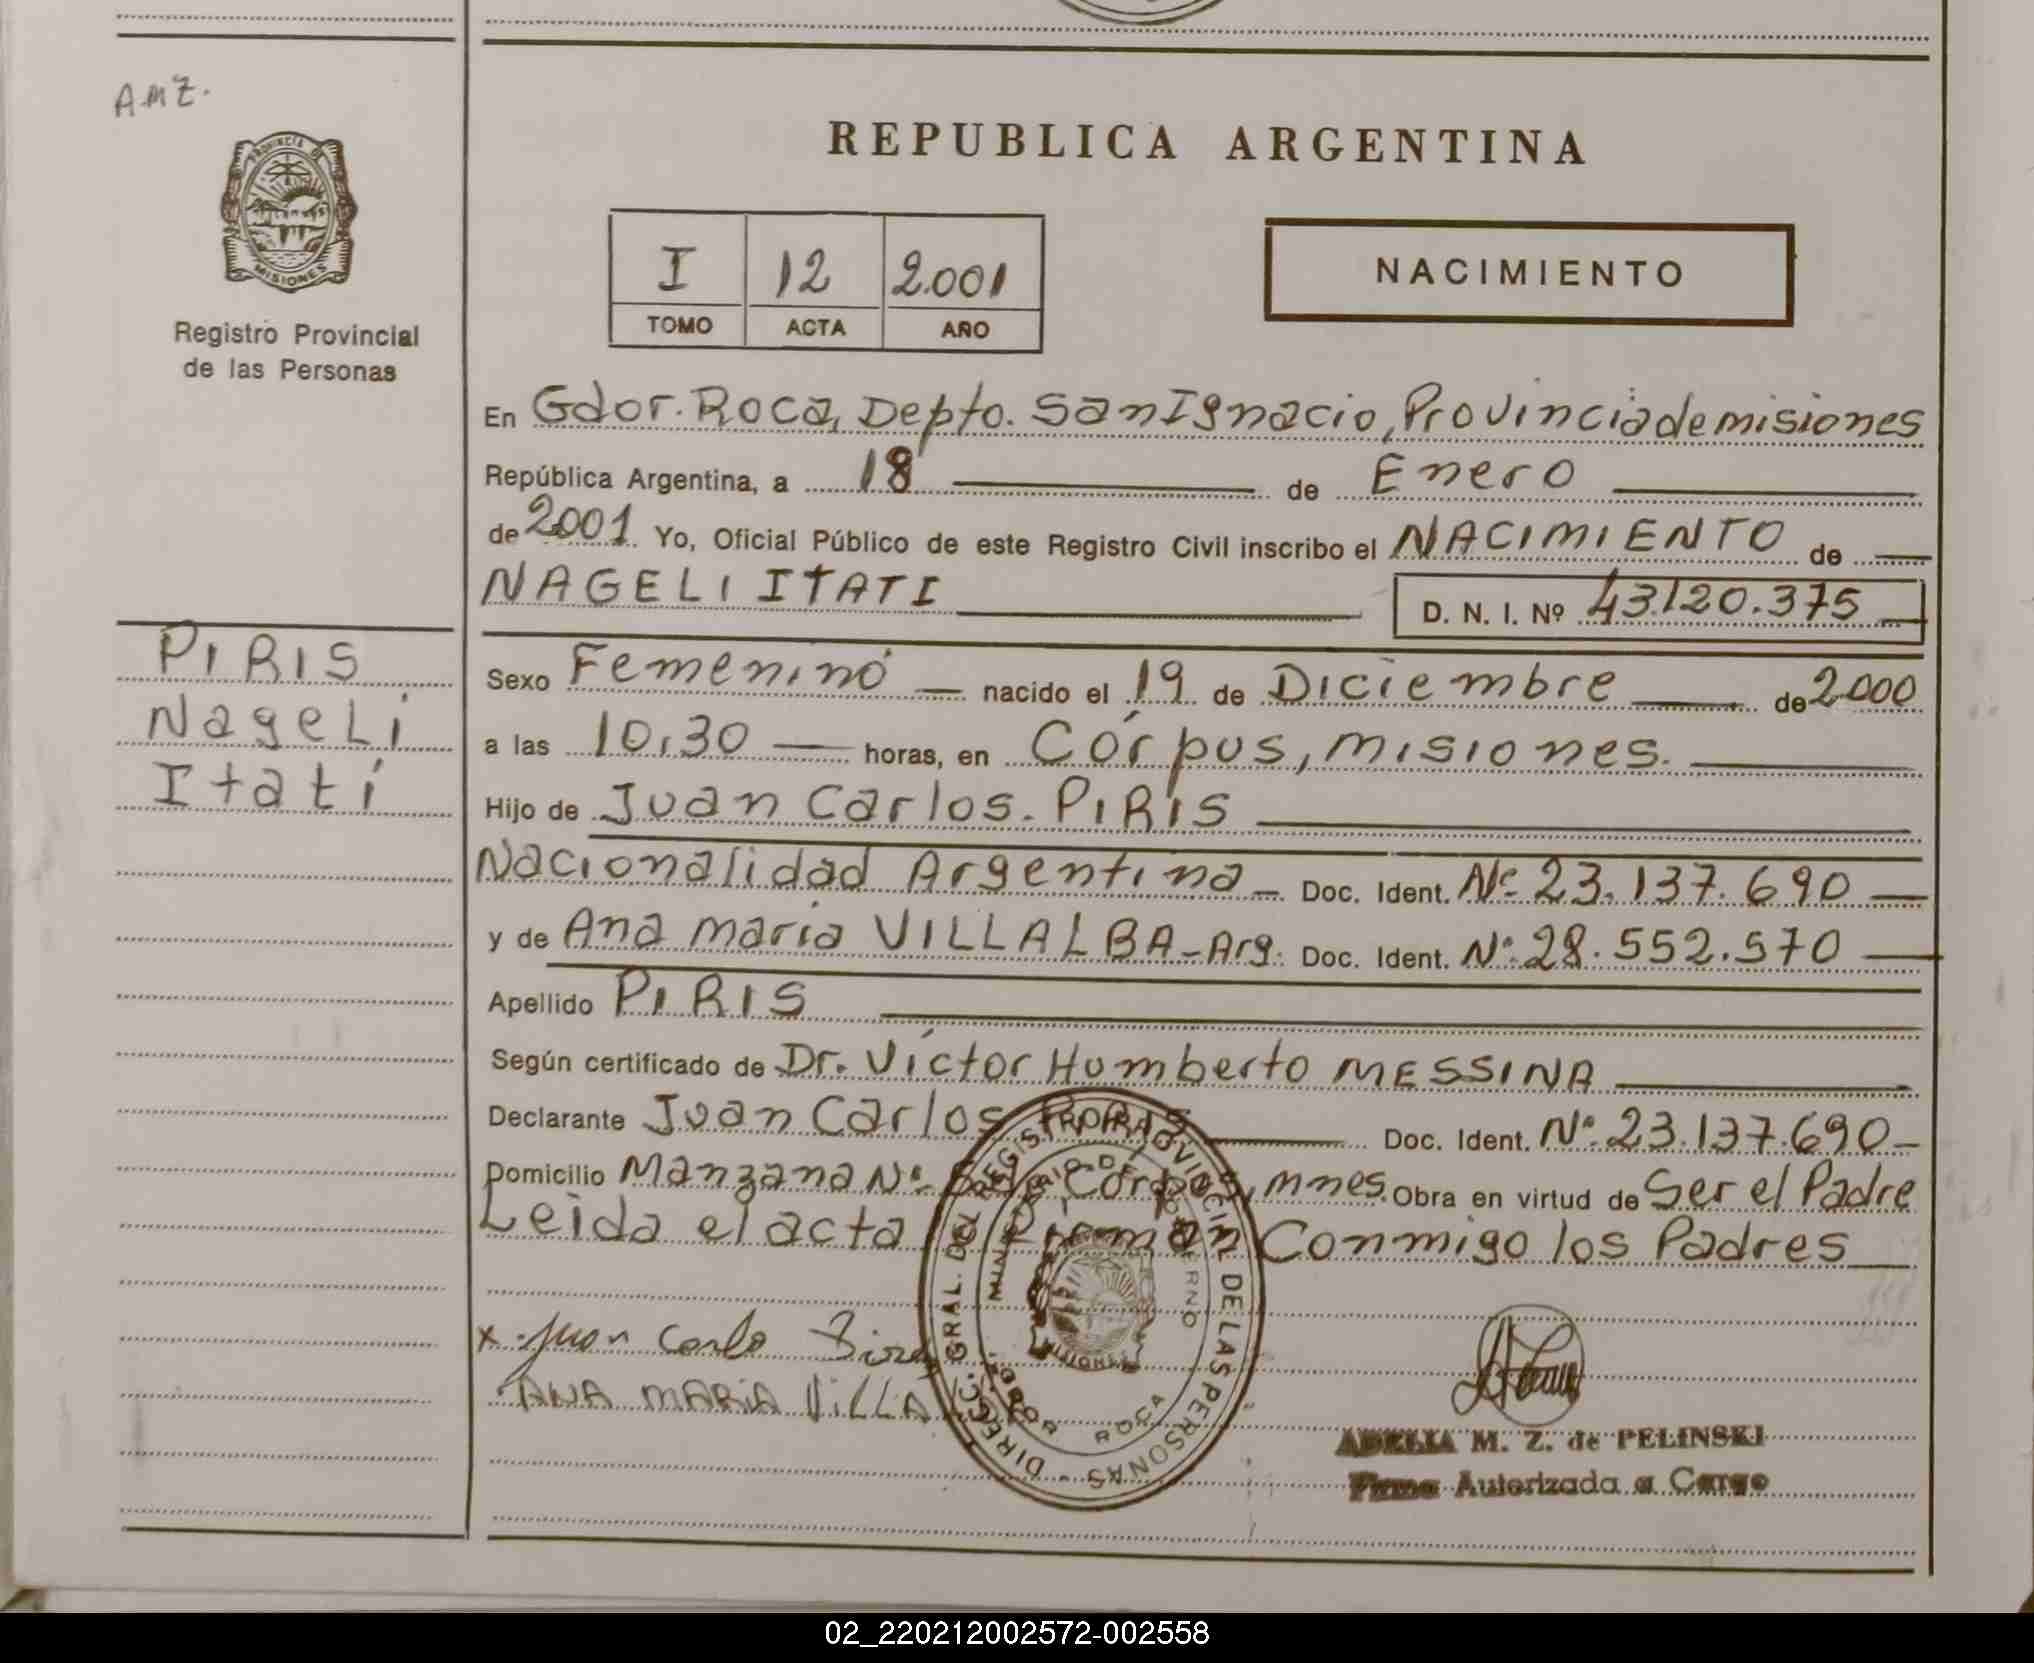 A.M.Z.
PROVINCIA DE
MISIONES
Registro Provincial
de las Personas
PIRIS
Nageli
Itatí
REPUBLICA ARGENTINA
I 12 2.001
TOMO ACTA AÑO
NACIMIENTO
En Gdor. Roca, Depto. San Ignacio, Provincia de misiones
República Argentina, a 18 de Enero
de 2001 Yo, Oficial Público de este Registro Civil inscribo el NACIMIENTO de
NAGELI ITATI D. N. I. Nº 43.120.375
Sexo Femenino nacido el 19 de Diciembre de 2000
a las 10,30 horas, en Córpus, misiones.
Hijo de Juan Carlos. PIRIS
Nacionalidad Argentina Doc. Ident. Nº 23.137.690
y de Ana maria VILLALBA - Arg. Doc. Ident. Nº 28.552.570
Apellido PIRIS
Según certificado de Dr. Víctor Humberto MESSINA
Declarante Juan Carlos PIRIS Doc. Ident. Nº 23.137.690
Domicilio Manzana Nº Córpus, mnes. Obra en virtud de Ser el Padre
Leida el acta Firman Conmigo los Padres
DIREC. GRAL. DEL REGISTRO PROVINCIAL DE LAS PERSONAS
MINISTERIO DE GOBIERNO
GOBOR. ROCA
MISIONES
x Juan Carlo Piris
ANA MARIA VILLA
ADELIA M. Z. de PELINSKI
Firma Autorizada a Cargo
02_220212002572-002558